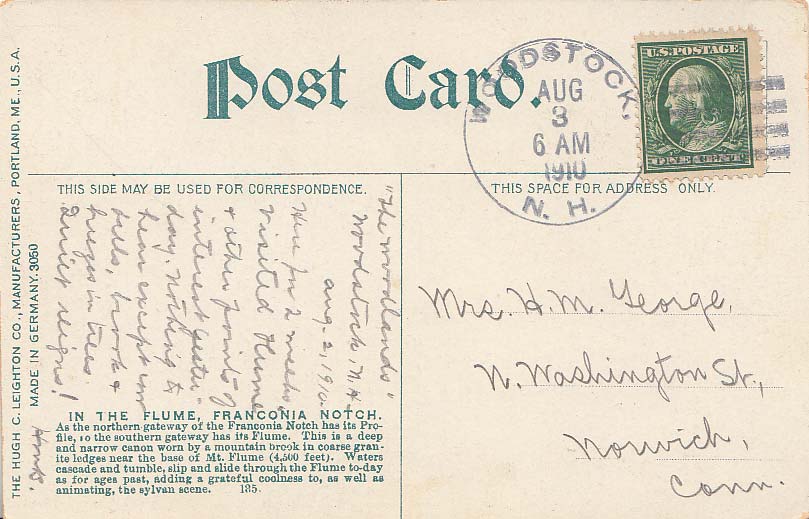 Post Card.
WOODSTOCK,
AUG
3
6 AM
1910
N. H.
U.S. POSTAGE
ONE CENT
THIS SIDE MAY BE USED FOR CORRESPONDENCE.
THIS SPACE FOR ADDRESS ONLY.
"The Woodlands"
Woodstock, N.H.
Aug-2, 1910.
Here for 2 weeks.
Visited Flume
& other points of
interest yester-
day. Nothing to
hear except cow
bells, brook &
breezes in trees.
Quiet reigns!
Mrs. H. M. George,
N. Washington St.,
Norwich,
Conn.
IN THE FLUME, FRANCONIA NOTCH.
As the northern gateway of the Franconia Notch has its Pro-
file, so the southern gateway has its Flume. This is a deep
and narrow canon worn by a mountain brook in coarse gran-
ite ledges near the base of Mt. Flume (4,500 feet). Waters
cascade and tumble, slip and slide through the Flume to-day
as for ages past, adding a grateful coolness to, as well as
animating, the sylvan scene. 135.
THE HUGH C. LEIGHTON CO., MANUFACTURERS, PORTLAND, ME., U.S.A.
MADE IN GERMANY. 3050